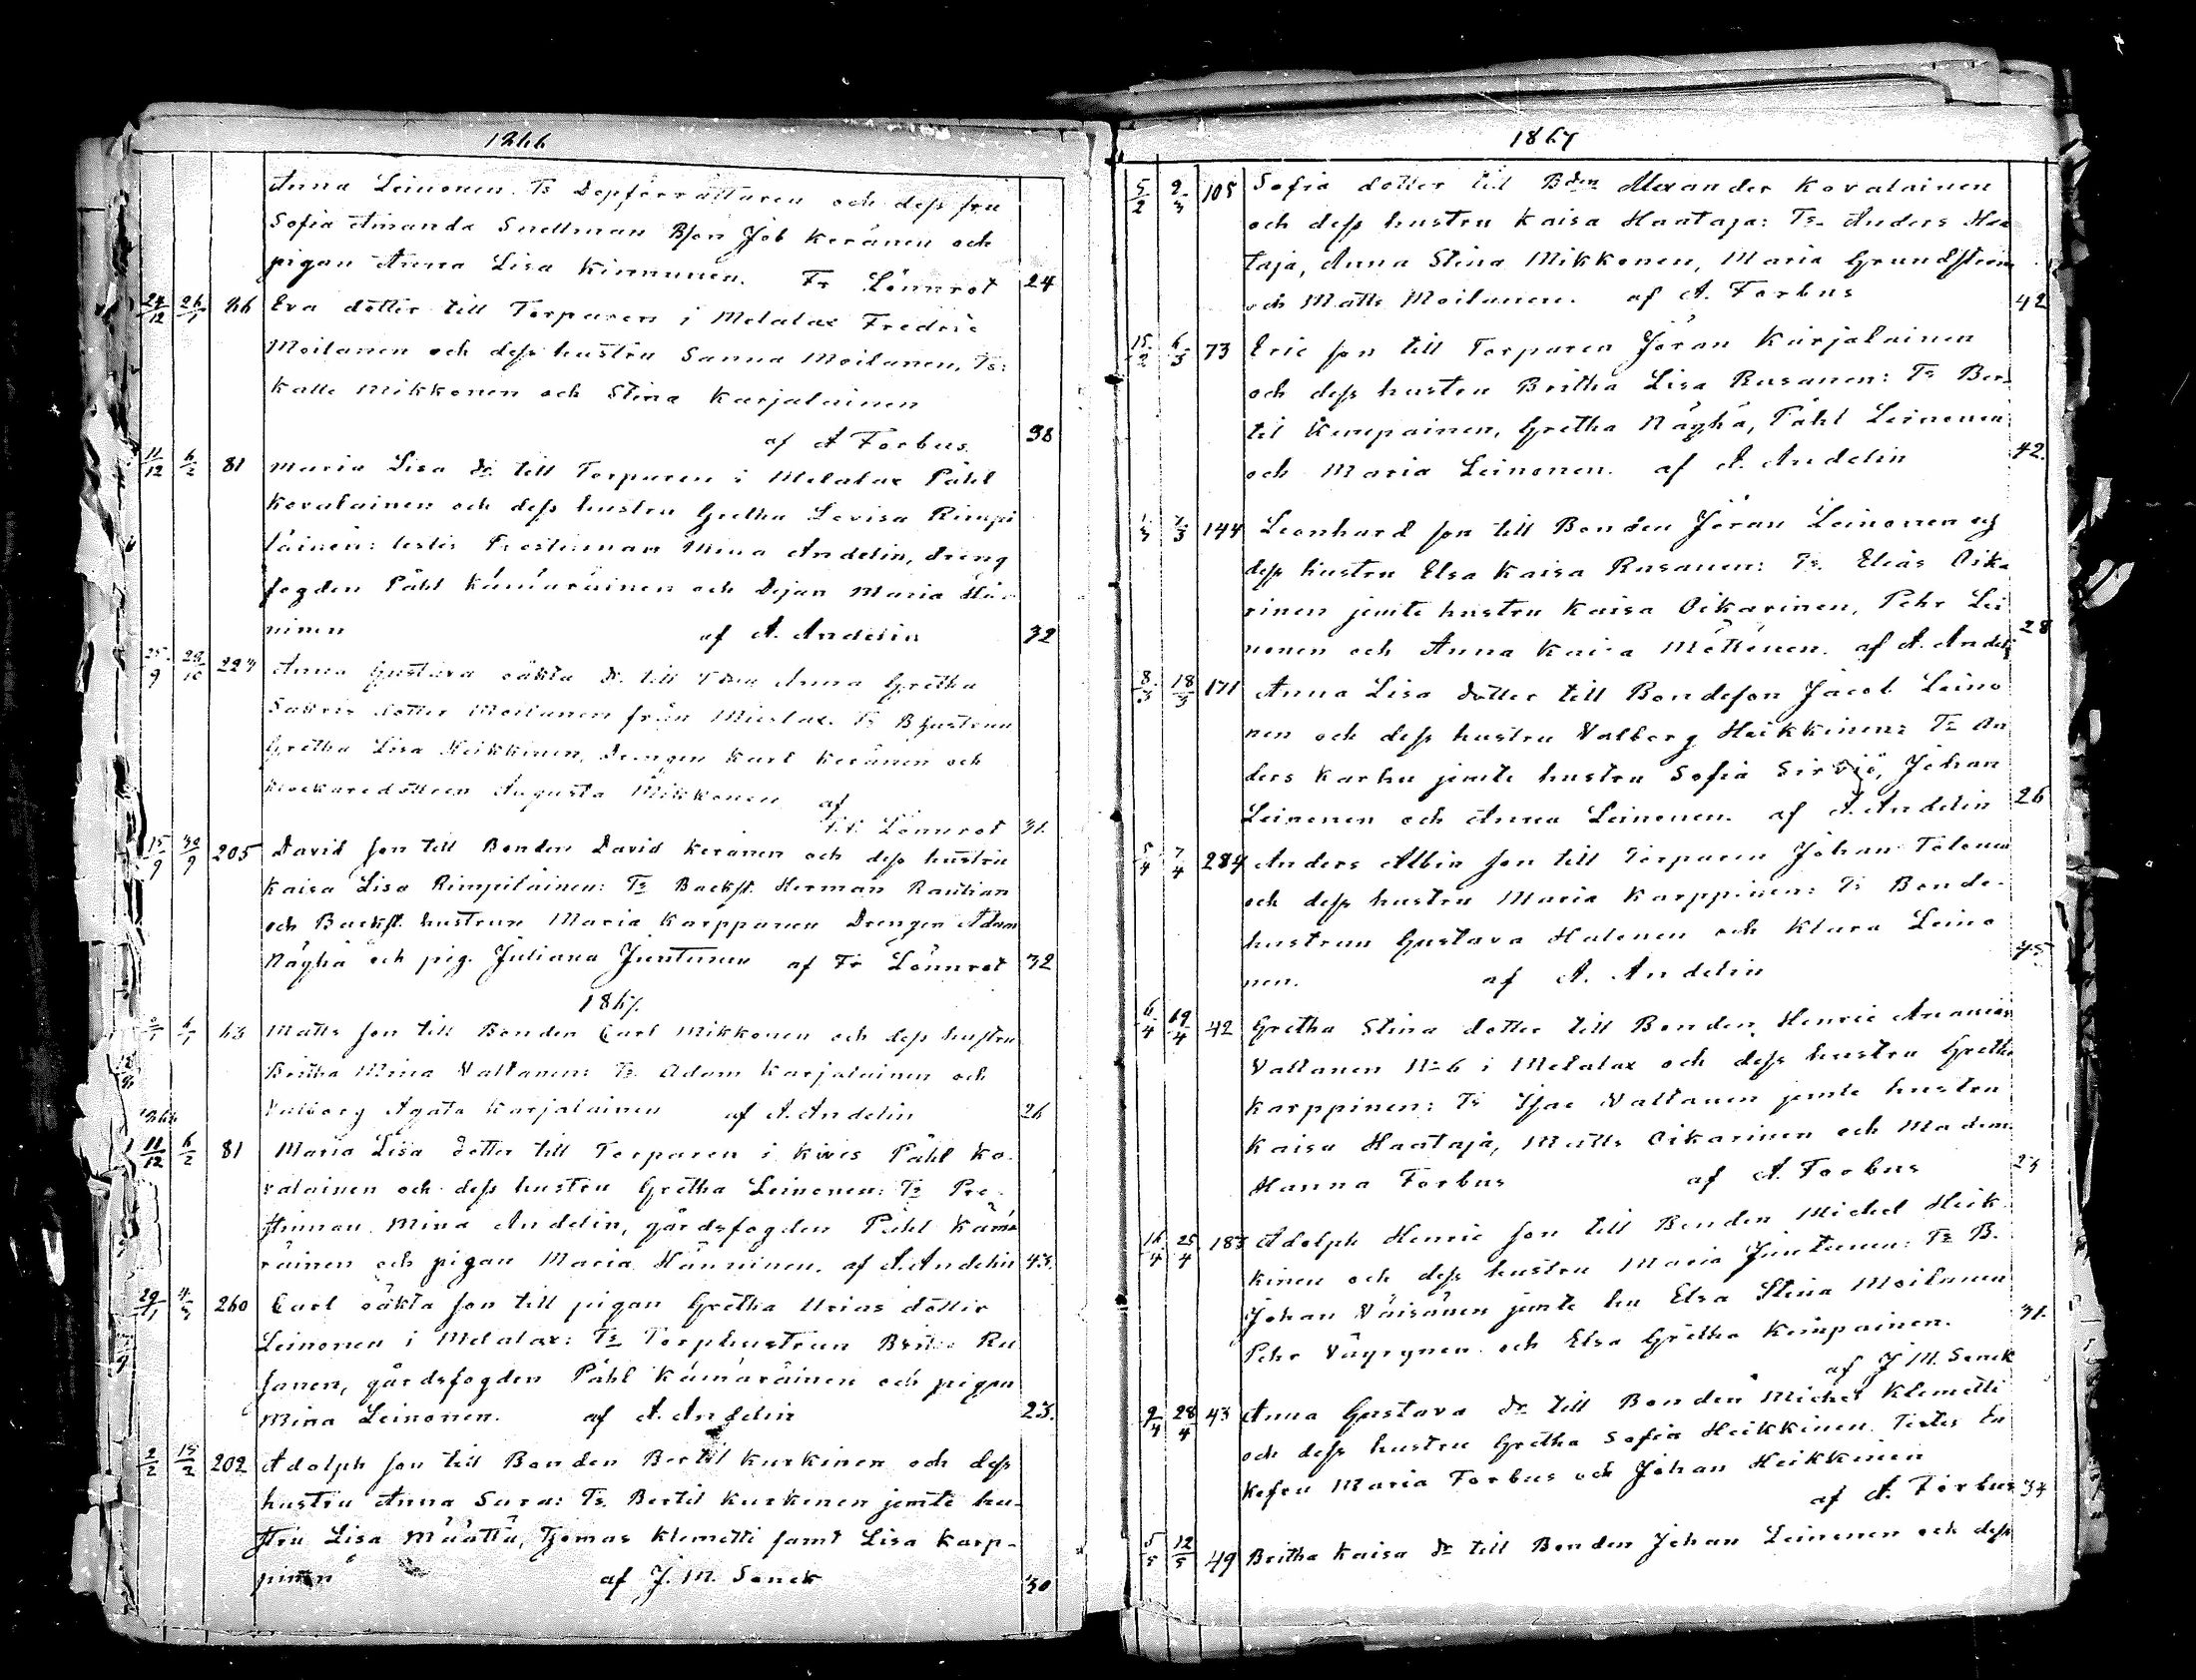 1866
Anna Leinonen. Ts Dopförrättaren och dess fru
Sofia Amanda Snellman Bson Job Keränen och
pigan Anna Lisa Kinnunen. Fr Lönnrot 24
24/12 26/1 86 Eva dotter till Torparen i Melalax Fredric
Moilanen och dess hustru Sanna Moilanen, Ts:
Kalle Mikkonen och Stina Karjalainen
af A Forbus. 38
11/12 6/2 81 Maria Lisa dr till Torparen i Melalax Påhl
Kovalainen och dess hustru Gretha Lovisa Rimpi
läinen: testis Prostinnan Mina Andelin, dreng
fogden Påhl Kämäräinen och Dejan Maria Hän
ninen af A. Andelin 32
25/9 29/10 223 Anna Gustava oäkta dr. till Anna Gretha
Sakris dotter Moilanen från Mieslax. Ts Bhustrun
Gretha Lisa Heikkinen, Drengen Karl Keränen och
Klockaredottren Augusta Mikkonen af
Lönnrot 31.
15/9 30/9 205 David son till Bonden David Keränen och dess hustru
Kaisa Lisa Rimpiläinen: Ts Backst. Herman Rautian
och Backst. hustrun Maria Karppanen Drengen Adam
Näyhä och pig. Juliana Juntunen af Fr Lönnrot 32
1867.
2/1 6/1 63 Matts son till Bonden Carl Mikkonen och dess hustru
Britha Mina Valtanen: Ts Adam Karjalainen och
Valborg Agata Karjalainen af A. Andelin 26
1866
11/12 6/2 81 Maria Lisa dotter till Torparen i Kives Påhl Ko-
valainen och dess hustru Gretha Leinonen: Ts Pro-
stinnan Mina Andelin, gårdsfogden Påhl Kämä
räinen och pigan Maria Hänninen. af A. Andelin 43.
29/1 4/3 260 Carl oäkta son till pigan Gretha Urias dotter
Leinonen i Melalax: Ts Torphustrun Brita Ru
sanen, gårdsfogden Påhl Kämäräinen och pigan
Mina Leinonen. af A. Andelin 23.
2/2 15/2 202 Adolph son till Bonden Bertil Kurkinen och dess
hustru Anna Sara: Ts. Bertil Kurkinen jemte hu-
stru Lisa Määttä, Thomas Klemetti samt Lisa Karp-
pinen af J. M. Senck 30
1867
5/2 2/3 105 Sofia dotter till Bden Alexander Kovalainen
och dess hustru Kaisa Haataja: Ts. Anders Haa
taja, Anna Stina Mikkonen, Maria Grundström
och Matts Moilanen. af A. Forbus 42
15/2 6/3 73 Eric son till Torparen Jöran Karjalainen
och dess hustru Britha Lisa Rusanen: Ts Ber
til Kempainen, Gretha Näyhä, Påhl Leinonen
och Maria Leinonen. af A. Andelin 42.
1/3 7/3 144 Leonhard son till Bonden Jöran Leinonen och
dess hustru Elsa Kaisa Rusanen: Ts. Elias Oika
rinen jemte hustru Kaisa Oikarinen, Pehr Lei
nonen och Anna Kaisa Möttönen. af A. Andel 28
8/3 18/3 171 Anna Lisa dotter till Bondeson Jacob Leino
nen och dess hustru Valborg Heikkinen: Ts An
ders Karhu jemte hustru Sofia Sirviö, Johan
Leinonen och Anna Leinonen. af A. Andelin 26
5/4 7/4 284 Anders Albin son till Torparen Johan Tolonen
och dess hustru Maria Karppinen: Ts Bonde-
hustrun Gustava Halonen och Klara Leino
nen. af A. Andelin 45
6/4 19/4 42 Gretha Stina dotter till Bonden Henric Ananias
Valtanen No 6 i Melalax och dess hustru Gretha
Karppinen: Ts Isac Valtanen jemte hustru
Kaisa Haataja, Matts Oikarinen och Madem.
Hanna Forbus af A. Forbus 23
16/4 25/4 183 Adolph Henric son till Bonden Michel Heik
kinen och dess hustru Maria Juntunen: Ts B.
Johan Väisänen jemte hu Elsa Stina Moilanen
Pehr Väyrynen och Elsa Gretha Kempainen. 31.
af J M. Senck
9/4 28/4 43 Anna Gustava dr till Bonden Michel Klemetti
och dess hustru Gretha Sofia Heikkinen. Testes En
kefru Maria Forbus och Johan Heikkinen
af A. Forbus 34
5/5 12/5 49 Britha Kaisa dr till Bonden Johan Leinonen och dess